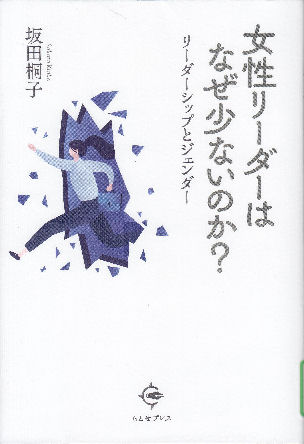 女性リーダーは
なぜ少ないのか?
リーダーシップとジェンダー
坂田桐子
Sakata Kiriko
ちとせプレス